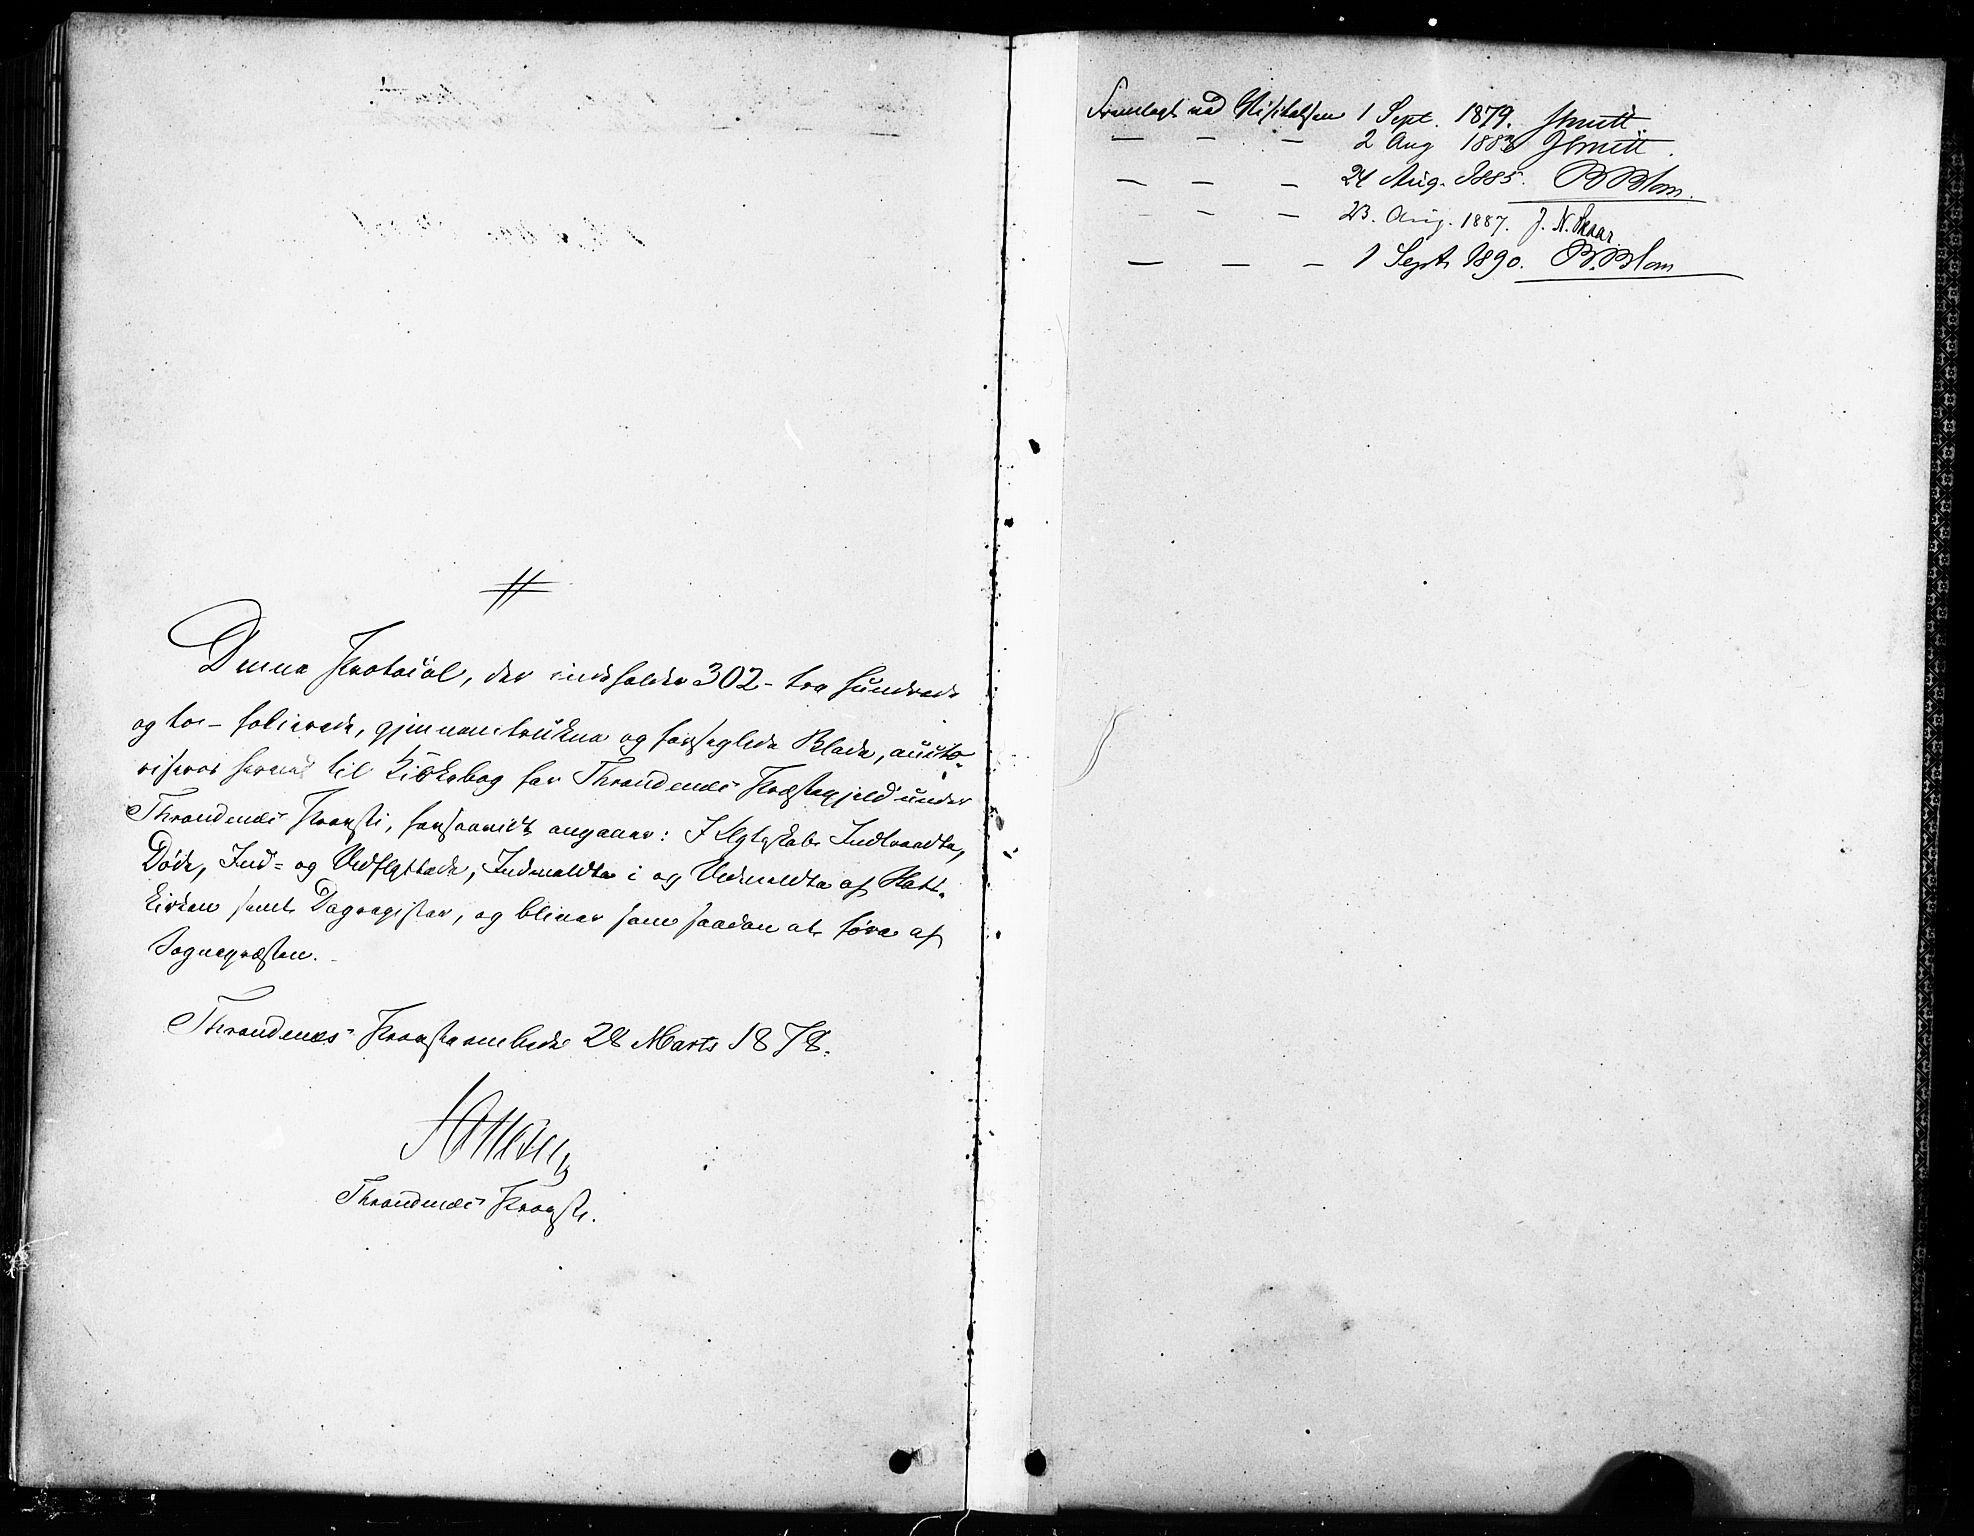 Denne Protocol, der indeholder 302 - tre hundrede
og to - folierede, gjennemtrukne og forseglede Blade, aucto-
riseres herved til Kirkebog for Throndenæs Præstegjeld under
Throndenæs Provsti, forsaavidt angaaer: I Ægteskab Indtraadte,
Døde, Ind- og Udflyttede, Indmeldte i og Udmeldte af Stats-
kirken samt Dagregister, og bliver som saadan at føre af
Sognepræsten.
Throndenæs Provsteembede 28 Marts 1878.
Throndenæs Provsti.
Fremlagt ved Visitatsen 1 Sept. 1879. Smitt.
— — — 2 Aug 1883 JSmitt.
— — — 24 Aug. 1885. B Blom.
— — — 23. Aug. 1887. J. N. Skaar
— — — 1 Sept 1890. B. Blom